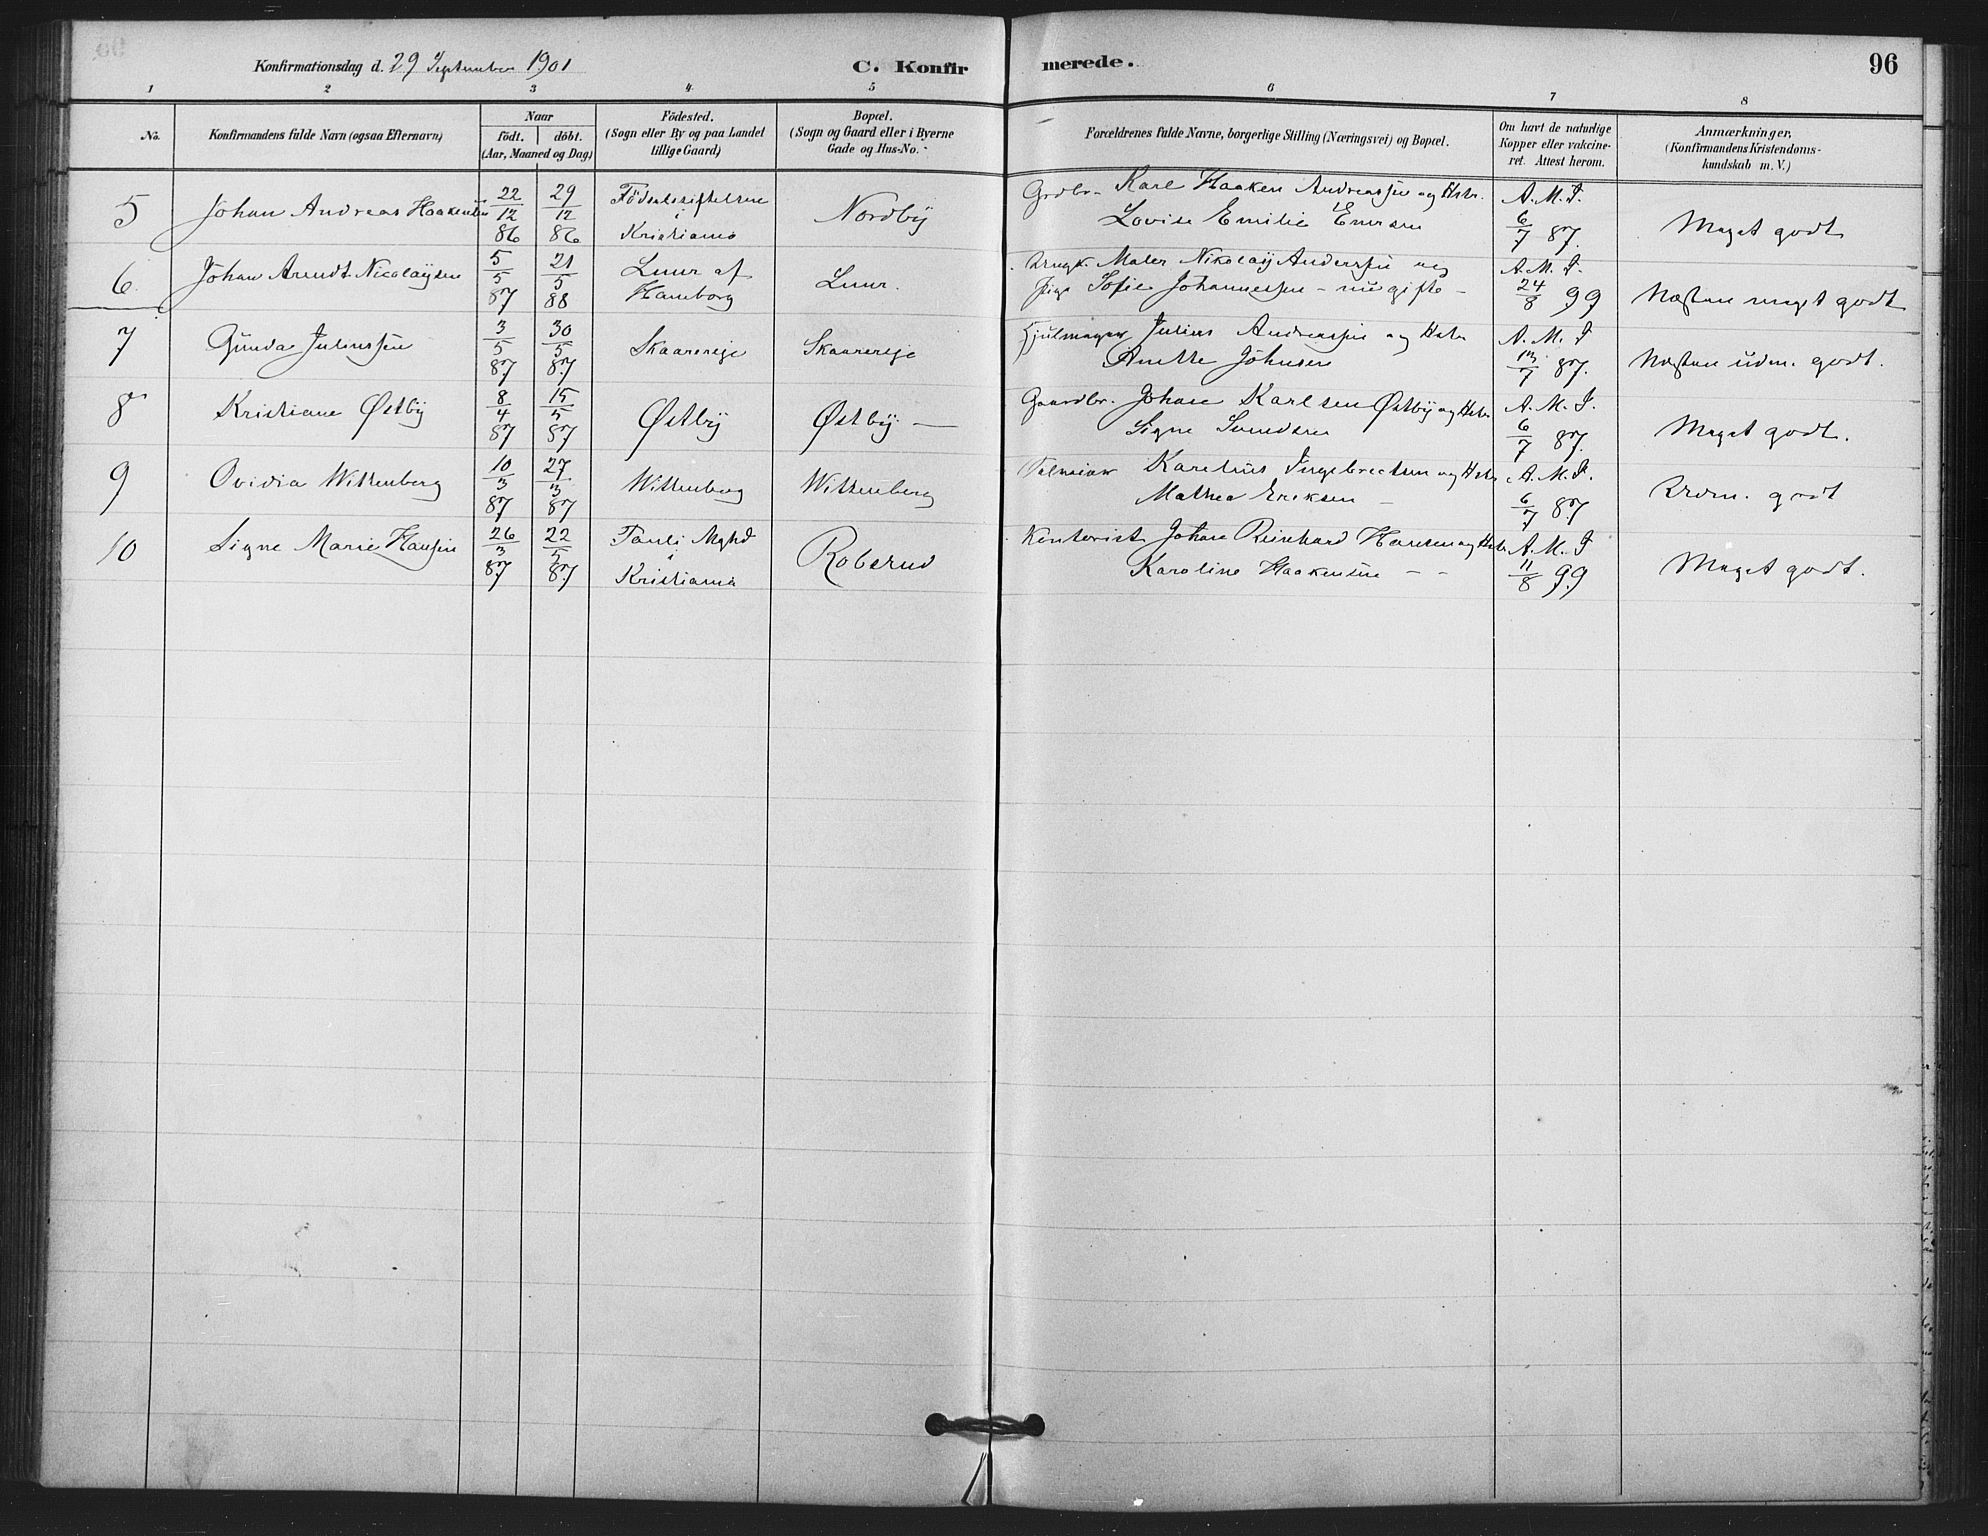 Konfirmationsdag d. 29 September 1901
C. Konfirmerede.
96
1 2 3 4 5 6 7 8
No.
Konfirmandens fulde Navn (ogsaa Efternavn)
Naar
födt. döbt.
(Aar, Maaned og Dag)
Födested.
(Sogn eller By og paa Landet
tillige Gaard)
Bopæl.
(Sogn og Gaard eller i Byerne
Gade og Hus-No.
Forældrenes fulde Navne, borgerlige Stilling (Næringsvei) og Bopæl.
Om havt de naturlige
Kopper eller vakcine-
ret. Attest herom.
Anmærkninger.
(Konfirmandens Kristendoms-
kundskab m. V.)
5 Johan Andreas Haakensen 22/12 86 29/12 86 Födselsstiftelsen i Kristiania Nordby Grdbr. Karl Haaken Andreassen og Hstr.
Lovise Emilie Enersen A. M. I. 6/7 87. Meget godt
6. Johan Arndt Nicolaysen 5/5 87 21/5 88 Luur af Haneborg Luur. Ungk. Maler Nikolay Anderssen og
Pige Sofie Johannessen - nu gifte - A. M. I. 24/8 99 Næsten meget godt
7 Gunda Juliussen 3/5 87 30/5 87 Skaarereje Skaarereje Hjulmager Julius Andreassen og Hstr
Anette Johnsen A. M. I 13/7 87. Næsten udm. godt.
8 Kristiane Østby 8/4 87 15/5 87 Østby Østby - Gaardbr. Johan Karlsen Østby og Hstr.
Signe Svendsen A. M. I. 6/7 87. Meget godt.
9 Ovidia Wittenberg 10/3 87 27/3 87 Wittenberg Wittenberg Karelius Ingebrectsen og Hstr
Mathea Eriksen - A. M. I. 6/7 87 Udm. godt
10 Signe Marie Hansen 26/3 87 22/5 87 Pauli Mghd i Kristiania Robsrud Kontorist Johan Reinhard Hansen og Hstr
Karoline Haakensen - - A. M. I 11/8 99 Meget godt.